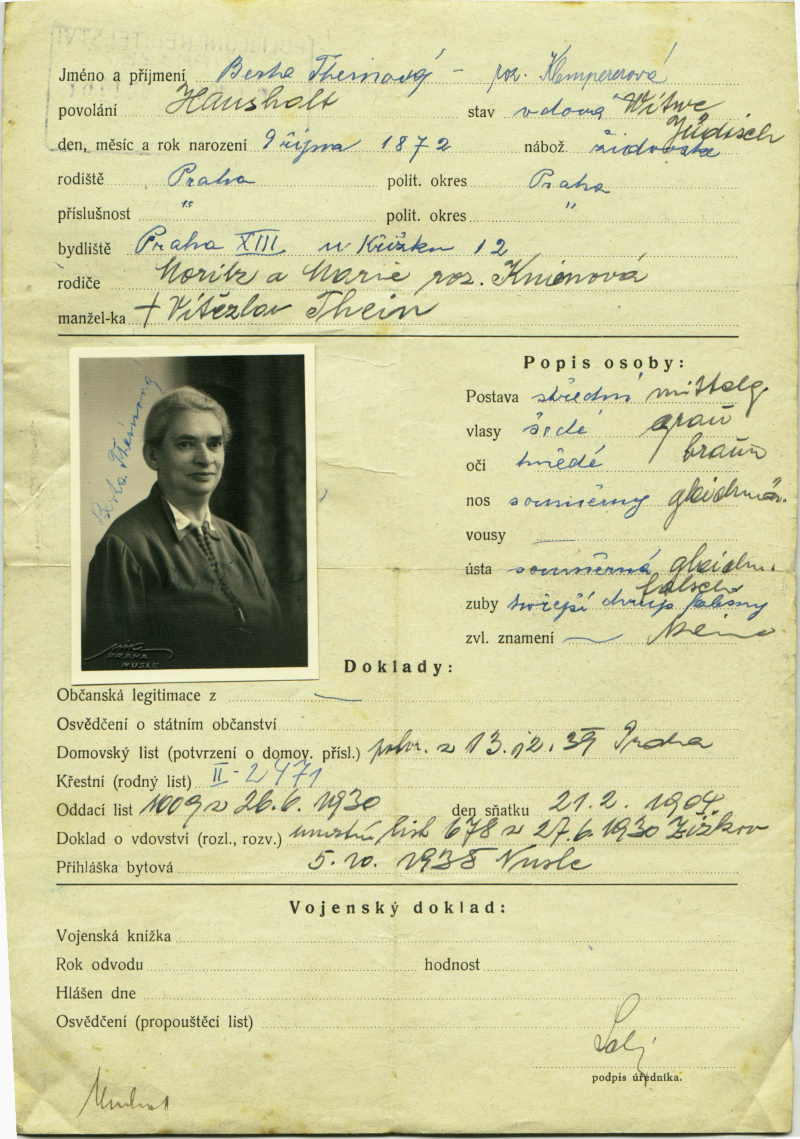 Jméno a příjmení Berta Theinová - roz. Klempererová
povolání Haushalt stav vdova Witwe
den, měsíc a rok narození 9 října 1872 nábož. židovské Jüdisch
rodiště Praha polit. okres Praha
příslušnost " polit. okres "
bydliště Praha XIII u Křížku 12
rodiče Moritz a Marie roz.
manžel-ka + Vítězlav Thein
Berta Theinová
PRAHA
NUSLE
Popis osoby:
Postava střední mittelg.
vlasy šedé grau
oči hnědé braun
nos souměrný gleichmäs.
vousy —
ústa souměrná gleichm.
zuby hořejší chrup falešný falsch
zvl. znamení — keine
Doklady:
Občanská legitimace z —
Osvědčení o státním občanství
Domovský list (potvrzení o domov. přísl.) potvr. z 13.12.39 Praha
Křestní (rodný list) II-2471
Oddací list 1009 z 26.6. 1930 den sňatku 21.2. 1904.
Doklad o vdovství (rozl., rozv.) úmrtní list 678 z 27.6.1930 Žižkov
Přihláška bytová 5.10. 1938 Nusle
Vojenský doklad:
Vojenská knížka
Rok odvodu hodnost
Hlášen dne
Osvědčení (propouštěcí list)
podpis úředníka.